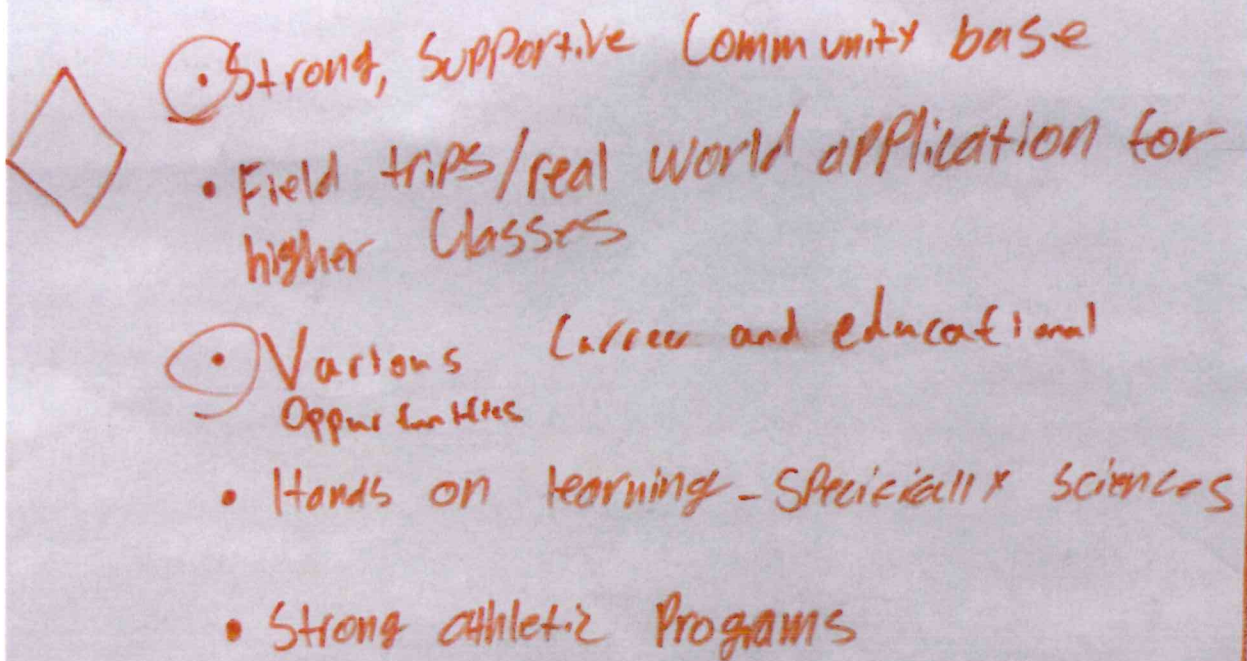 • Strong, Supportive Community base
• Field trips/real world application for
higher Classes
• Various Carreer and educational
Oppurtunities
• Hands on learning - Specicially sciences
• Strong athletic Programs